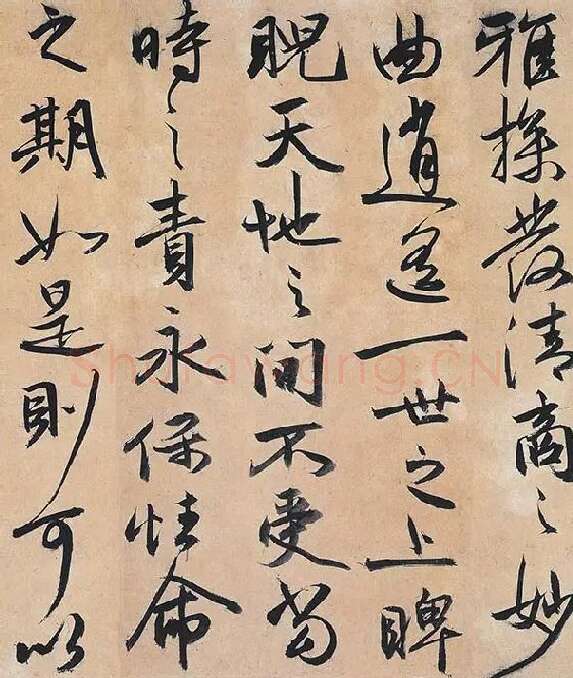 雅操發清商之妙
曲逍遙一世之上睥
睨天地之間不受當
時之責永保性命
之期如是則可以